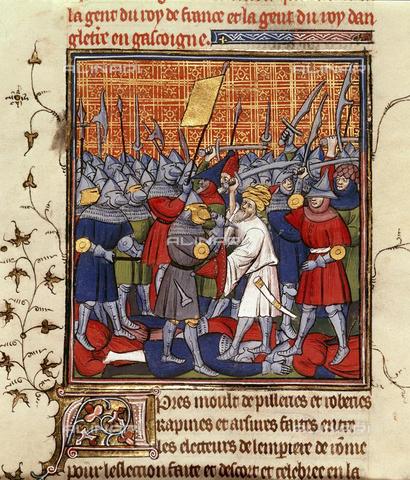 la gent du roy de france et la gent du roy dan
gletre en gascoigne.
ALINARI
ALINARI
ALINARI
Apres moult de pilleries et roberies
rapines et arsures faites entre
les electeurs de lempiere de rome
pour leslection faite et descort et celebree en la